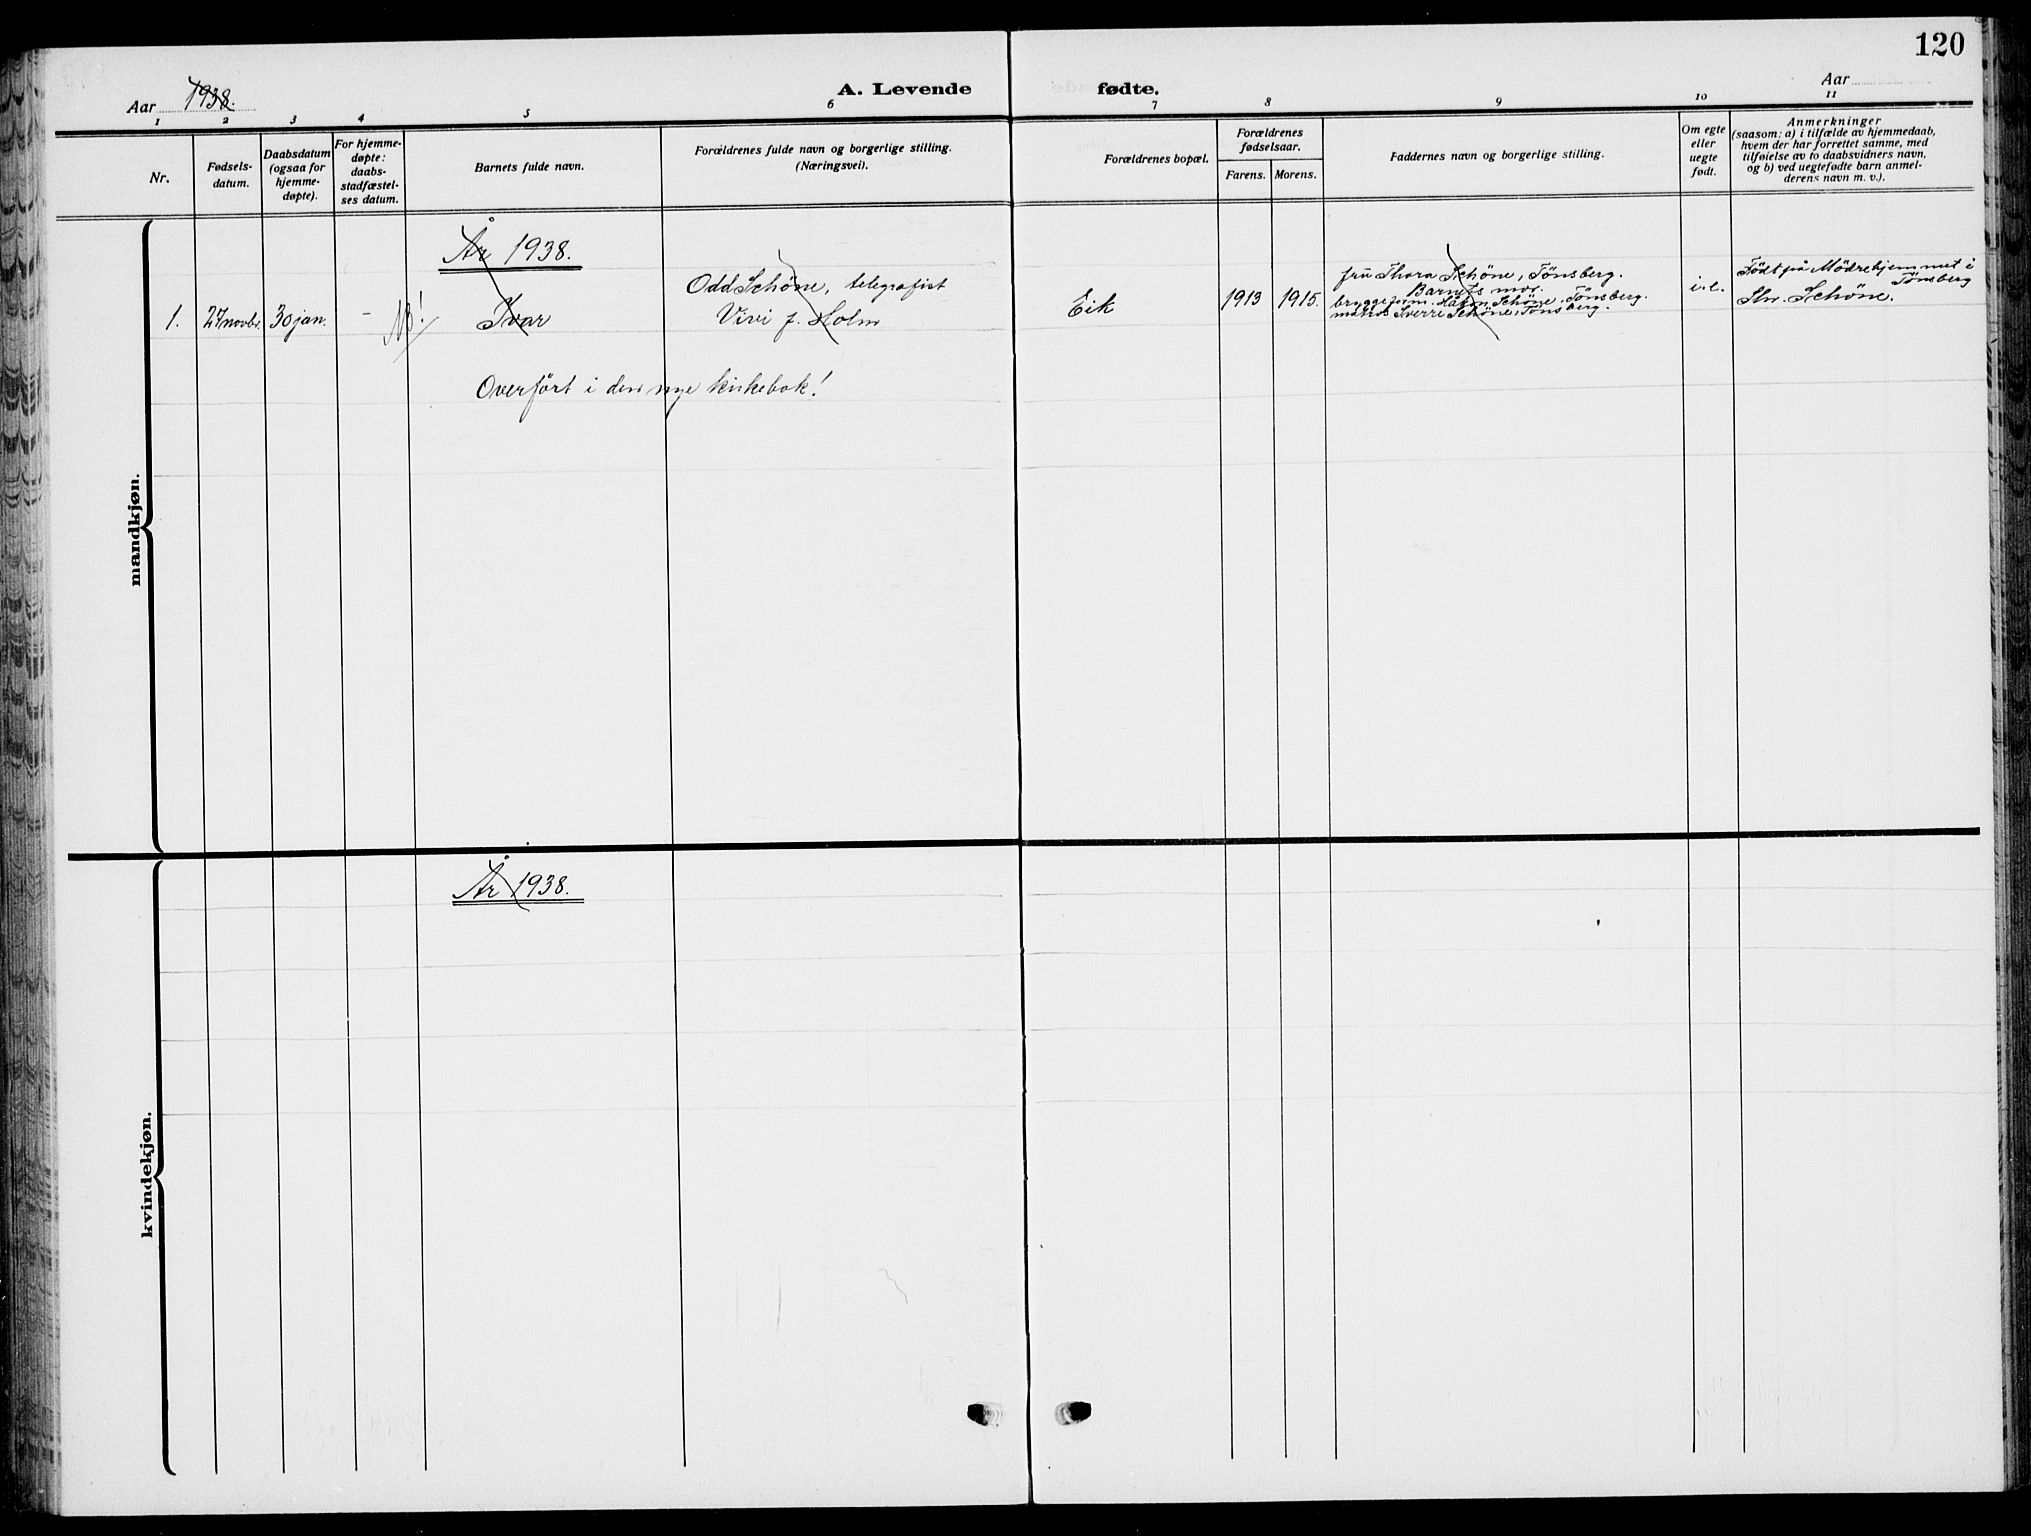 120
Aar 1938.
A. Levende fødte.
Aar
1 2 3 4 5 6 7 8 9 10 11
Nr.
Fødsels-
datum.
Daabsdatum
(ogsaa for
hjemme-
døpte).
For hjemme-
døpte:
daabs-
stadfæstel-
ses datum.
Barnets fulde navn.
Forældrenes fulde navn og borgerlige stilling.
(Næringsvei).
Forældrenes bopæl.
Forældrenes
fødselsaar.
Farens. Morens.
Faddernes navn og borgerlige stilling.
Om egte
eller
uegte
født.
Anmerkninger
(saasom: a) i tilfælde av hjemmedaab,
hvem der har forrettet samme, med
tilføielse av to daabsvidners navn,
og b) ved uegtefødte barn anmel-
derens navn m. v.).
mandkjøn.
År 1938.
1.
27 novbr.
30 jan.
-
NB!
Ivar
Odd Schöne, telegrafist
Vivi f. Holm
Eik
1913
1915.
fru Thora Schöne, Tønsberg.
Barnets mor.
bryggeform. Håkon Schöne, Tønsberg.
matros Sverre Schöne, Tønsberg.
Født på Mödrehjemmet i
Tønsberg
Schöne.
Overført i den nye kirkebok!
kvindekjøn.
År 1938.